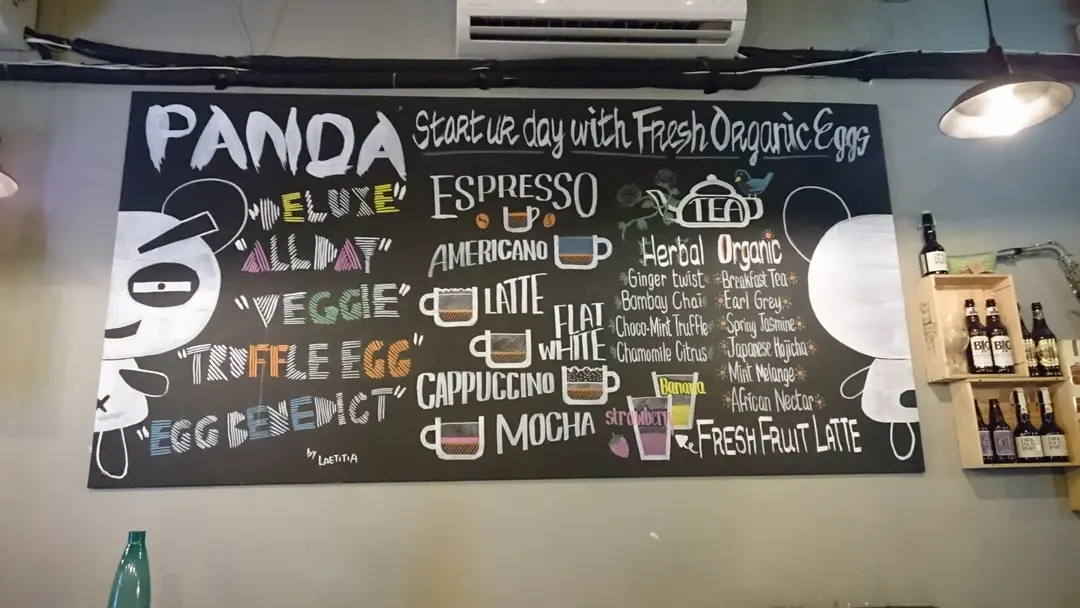 PANDA
Start ur day with Fresh Organic Eggs
"DELUXE"
"ALL DAY"
"VEGGIE"
"TRUFFLE EGG"
"EGG BENEDICT"
by LAETITIA
ESPRESSO
AMERICANO
LATTE
FLAT
WHITE
CAPPUCCINO
MOCHA
TEA
Herbal
Ginger twist
Bombay Chai
Choco-Mint Truffle
Chamomile Citrus
Organic
Breakfast Tea
Earl Grey
Spring Jasmine
Japanese Hojicha
Mint Melange
African Nectar
Banana
strawberry
FRESH FRUIT LATTE